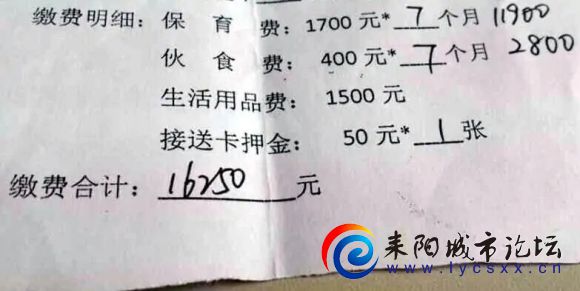 缴费明细：保 育 费：1700 元*7个月 11900
伙 食 费：400 元*7个月 2800
生活用品费：1500 元
接送卡押金：50 元*1张
缴费合计：16250元
耒阳城市论坛
www.lycsxx.cn